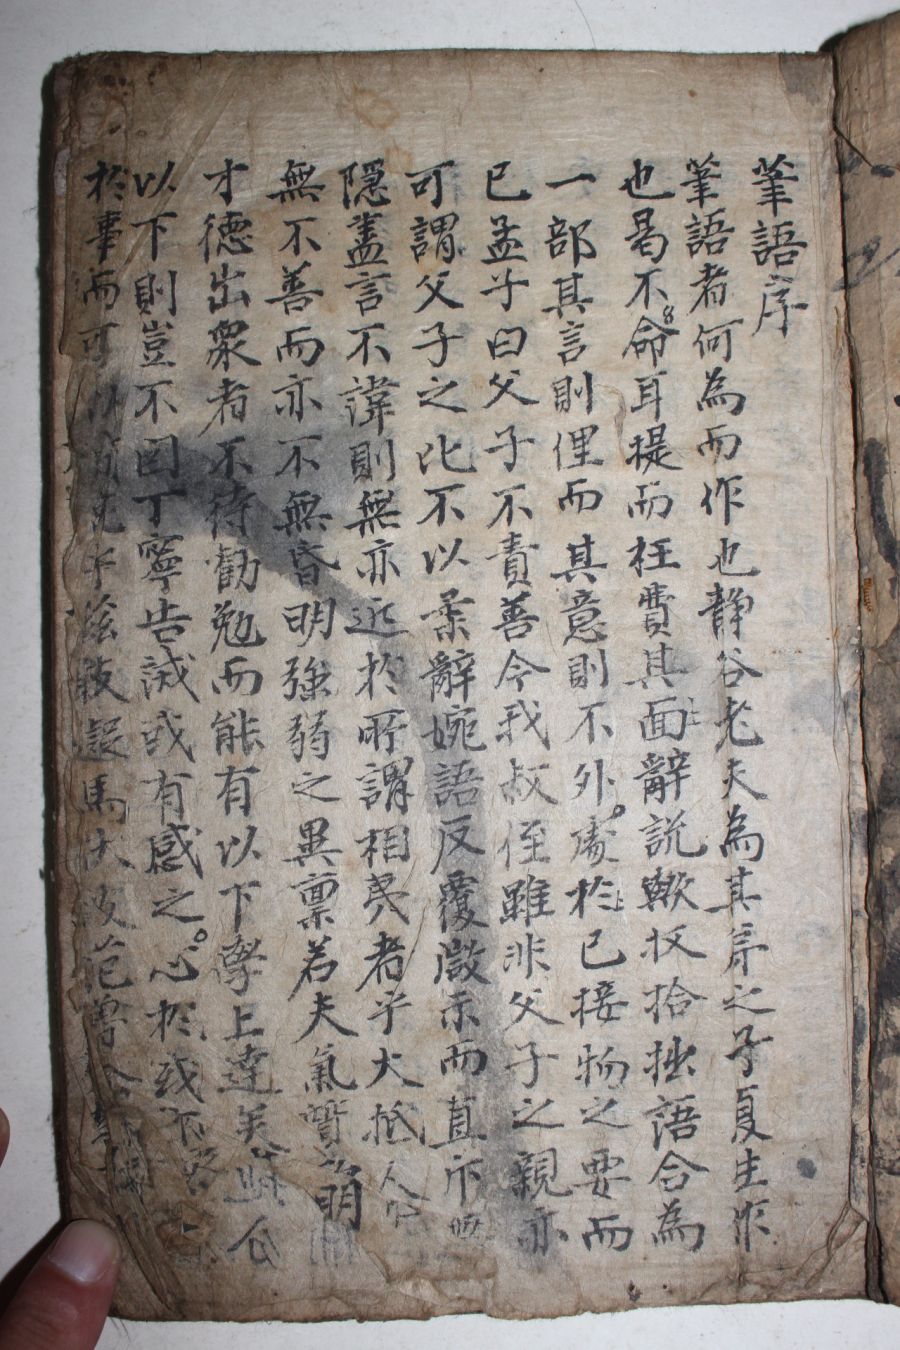 筆語序
筆語者何為而作也静谷老夫為其弟之子夏生作
也曷不命耳提而枉費其面辭説輙收拾拙語合為
一部其言則俚而其意則不外處於已接物之要而
已孟子曰父子不責善今我叔侄雖非父子之親亦
可謂父子之比不以柔辭婉語反覆啟示而直斥
隱盖言不諱則無亦近於所謂相夷者乎大抵人
無不善而亦不無昏明強弱之異禀若夫氣質明
才德出衆者不待勸勉而能有以下學上達矣
以下則豈不因丁寧告誡或有感之心於或
於事而可